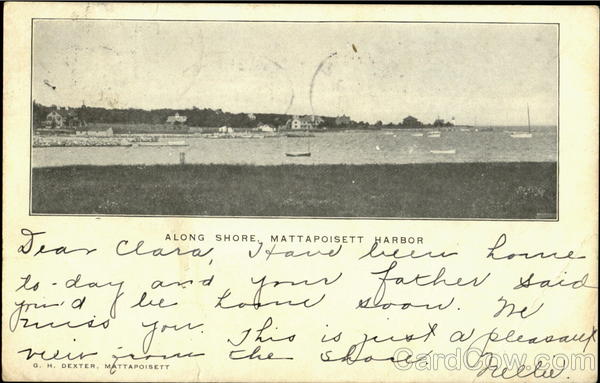 ALONG SHORE, MATTAPOISETT HARBOR
Dear Clara, Have been home
to-day and your father said
you'd be home soon. We
miss you. This is just a pleasant
view from the shore
Nellie.
G. H. DEXTER, MATTAPOISETT
CardCow.com